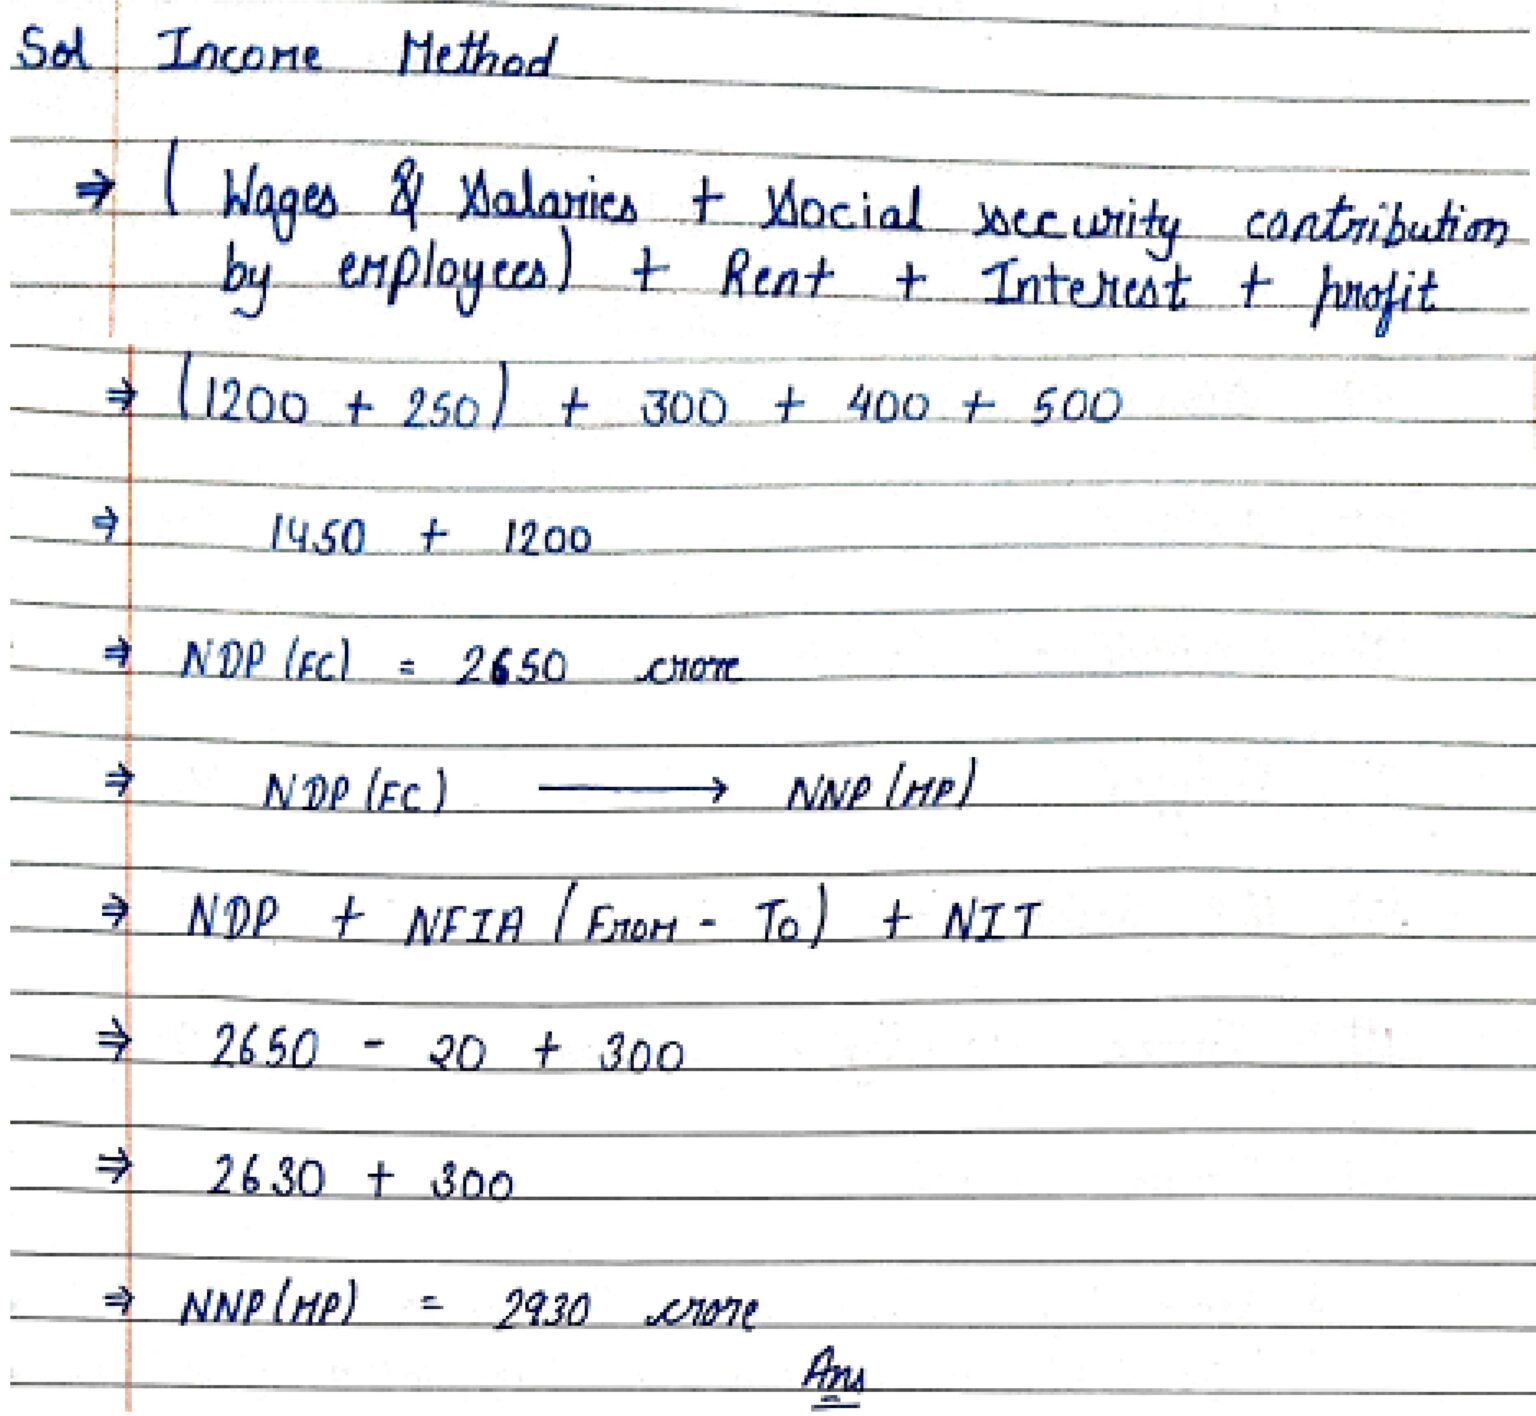 Sol Income Method
⇒ ( Wages & Salaries + Social security contribution
by employees) + Rent + Interest + profit
⇒ (1200 + 250) + 300 + 400 + 500
⇒ 1450 + 1200
⇒ NDP (FC) = 2650 crore
⇒ NDP (FC) ⟶ NNP (MP)
⇒ NDP + NFIA (From - To) + NIT
⇒ 2650 - 20 + 300
⇒ 2630 + 300
⇒ NNP (MP) = 2930 crore
Ans